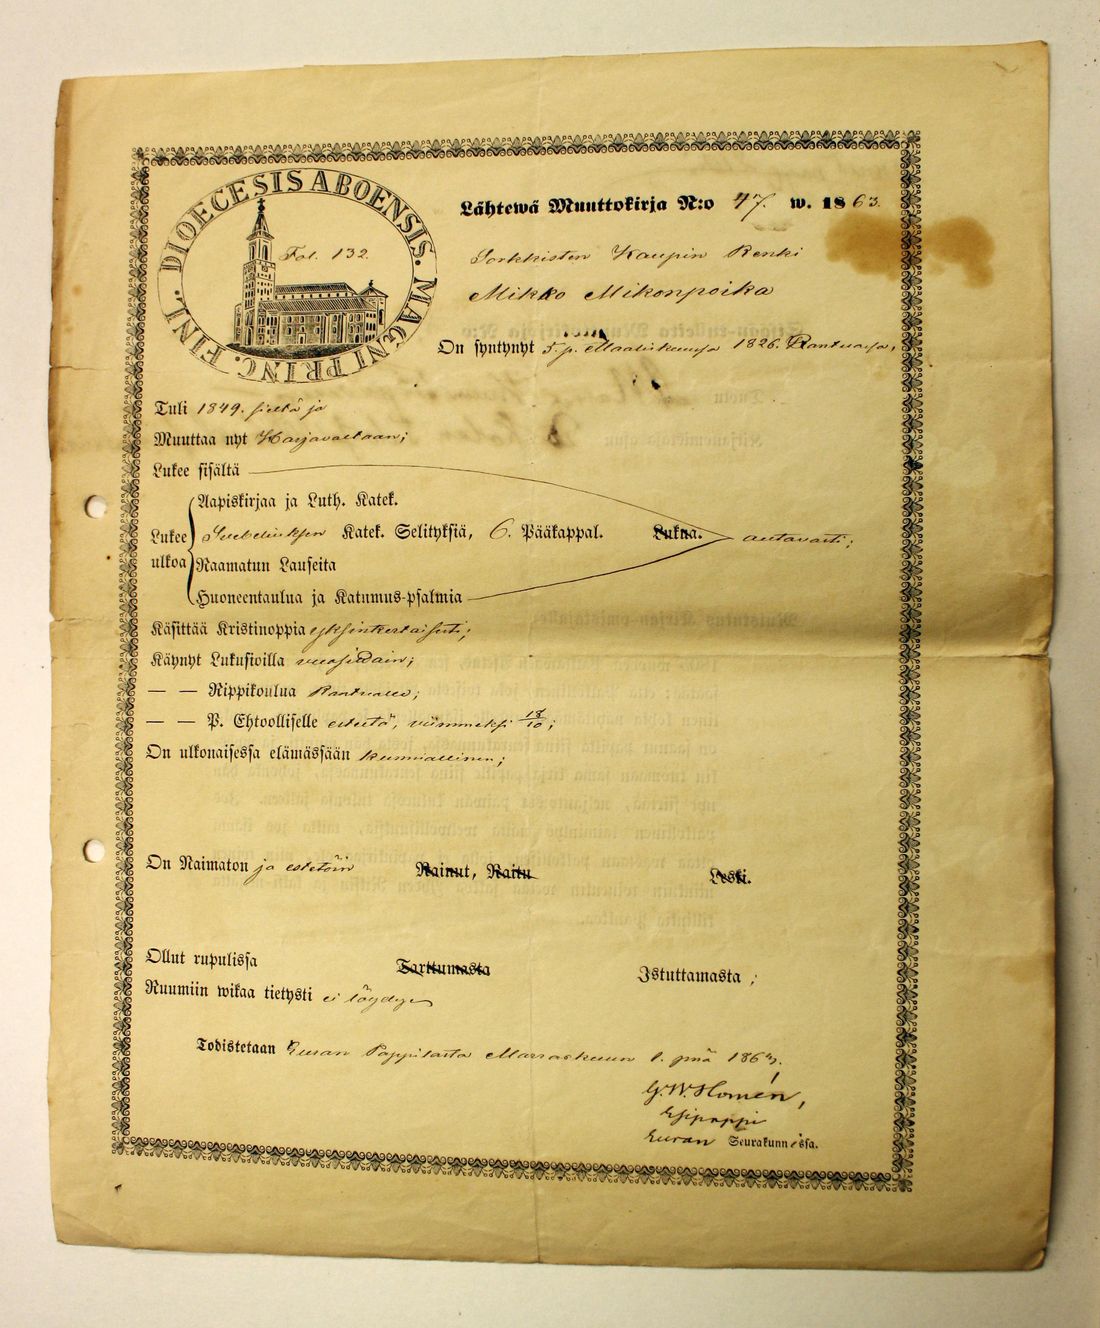 DIOECESIS ABOENSIS. MAGNI PRINC. FINL.
Fol. 132.
Lähtewä Muuttokirja N:o 47. w. 1863.
Sorkkisten Kaupin Renki
Mikko Mikonpoika
On syntynyt 5. p. Maaliskuussa 1826.
Tuli 1849. sieltä ja
Muuttaa nyt Harjavaltaan;
Lukee sisältä
Aapiskirjaa ja Luth. Katek.
Lukee ulkoa Svebeliuksen Katek. Selityksiä, 6. Pääkappal. Lukua. auttavasti;
Raamatun Lauseita
Huoneentaulua ja Katumus-psalmia
Käsittää Kristinoppia yksinkertaisesti;
Käynyt Lukusioilla vuosittain;
— — Rippikoulua
— — P. Ehtoolliselle esteetä, viimmeksi 18/10;
On ulkonaisessa elämässään kunniallinen;
On Naimaton ja estetöin Nainut, Naitu Leski.
Ollut rupulissa Tarttumasta Istuttamasta;
Ruumiin wikaa tietysti ei löydy
Todistetaan Euran Pappilasta Marraskuun 1. pnä 1863.
G. W. Homén,
Esipappi
Euran Seurakunnassa.